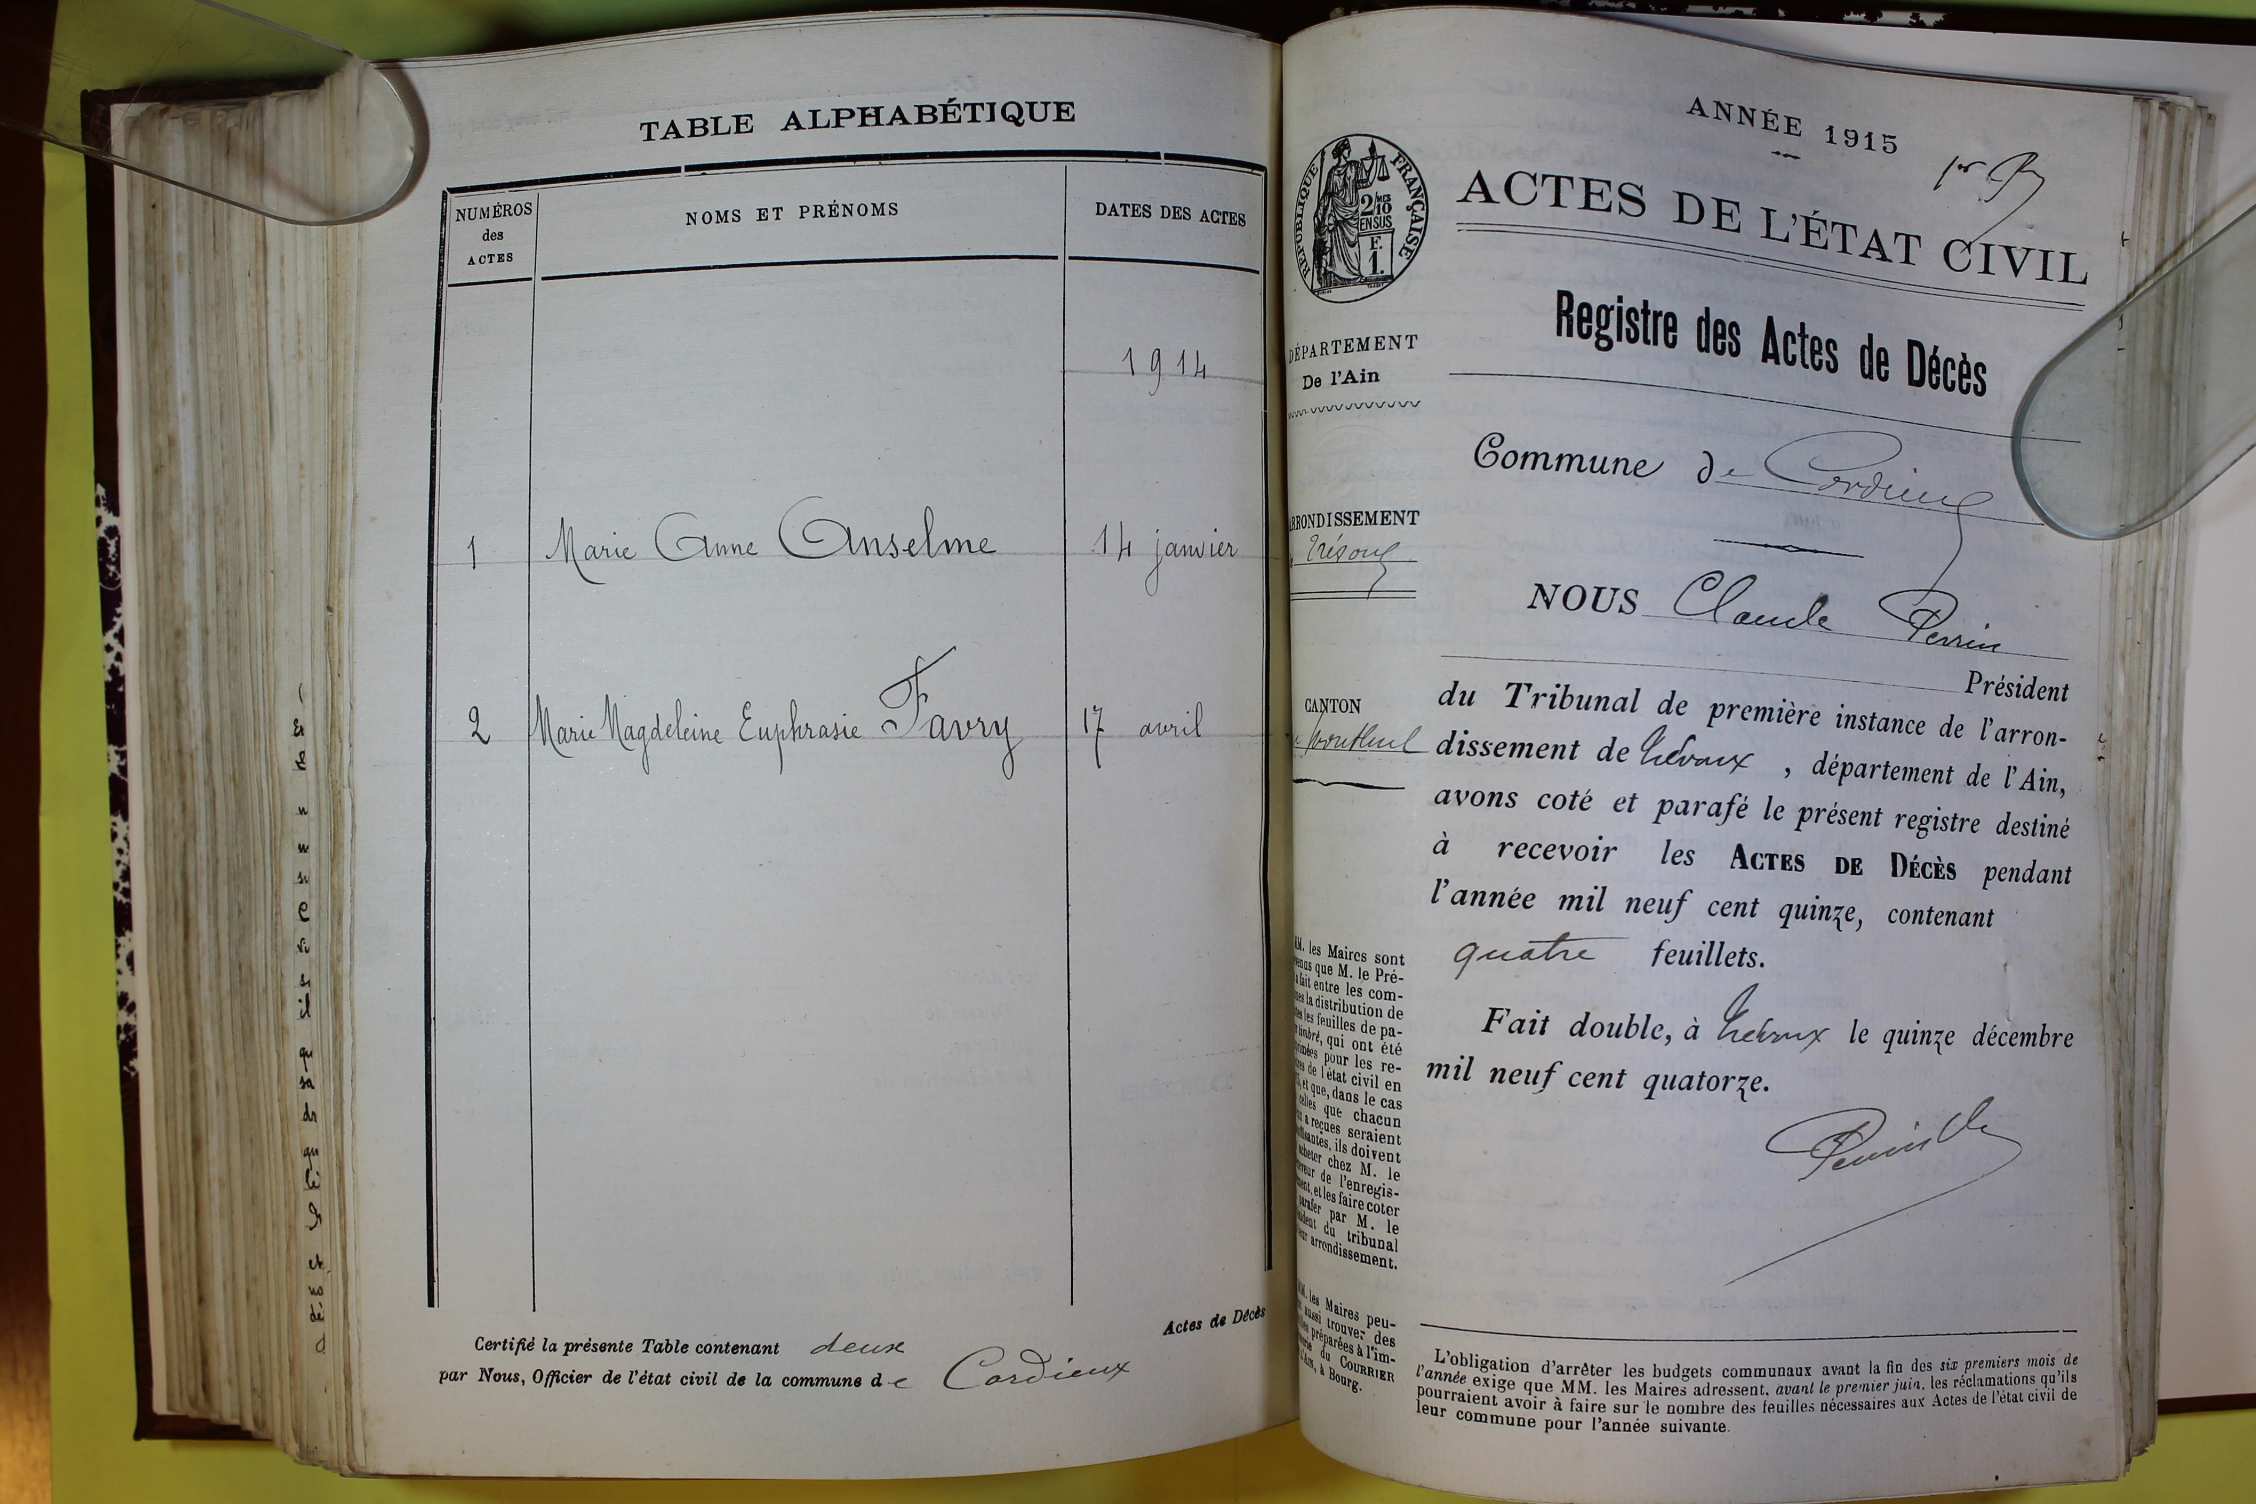 TABLE ALPHABÉTIQUE
NUMÉROS
des
ACTES
NOMS ET PRÉNOMS
DATES DES ACTES
1914
1 Marie Anne Anselme 14 janvier
2 Marie Magdeleine Euphrasie Favry 17 avril
Actes de Décès
Certifié la présente Table contenant deux
par Nous, Officier de l'état civil de la commune de Cordieux
ANNÉE 1915
1er
RÉPUBLIQUE FRANÇAISE
2/10
MES
EN SUS
F.
1.
DÉPARTEMENT
De l'Ain
ARRONDISSEMENT
Trévoux
CANTON
Montluel
MM. les Maires sont
que M. le Pré-
fait entre les com-
la distribution de
les feuilles de pa-
timbré, qui ont été
pour les re-
de l'état civil en
et que, dans le cas
celles que chacun
a reçues seraient
ils doivent
acheter chez M. le
de l'enregis-
et les faire coter
parafer par M. le
du tribunal
arrondissement.
MM. les Maires peu-
aussi trouver des
préparées à l'im-
du COURRIER
à Bourg.
ACTES DE L'ÉTAT CIVIL
Registre des Actes de Décès
Commune de Cordieux
NOUS Claude Perrin
Président
du Tribunal de première instance de l'arron-
dissement de Trévoux, département de l'Ain,
avons coté et parafé le présent registre destiné
à recevoir les ACTES DE DÉCÈS pendant
l'année mil neuf cent quinze, contenant
quatre feuillets.
Fait double, à Trévoux le quinze décembre
mil neuf cent quatorze.
L'obligation d'arrêter les budgets communaux avant la fin des six premiers mois de
l'année exige que MM. les Maires adressent, avant le premier juin, les réclamations qu'ils
pourraient avoir à faire sur le nombre des feuilles nécessaires aux Actes de l'état civil de
leur commune pour l'année suivante.